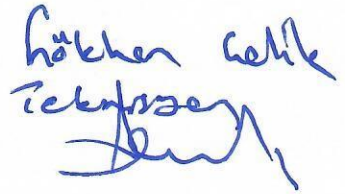 Gökhan Çelik
Teknisyen